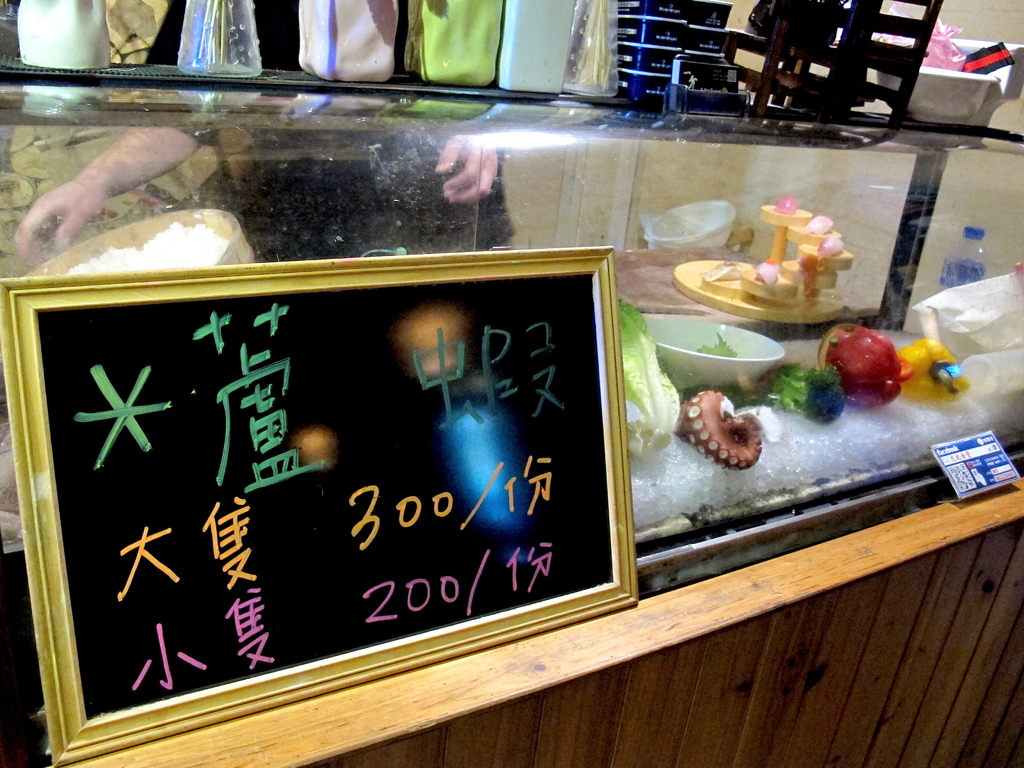 ※蘆 蝦
大隻 300/份
小隻 200/份
facebook